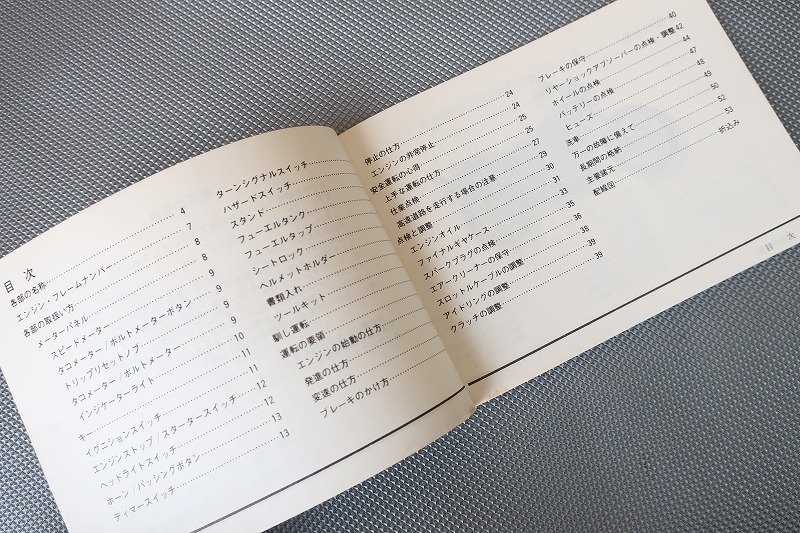 目次
各部の名称 4
エンジン・フレームナンバー 7
各部の取扱い方 8
メーターパネル 8
スピードメーター 9
タコメーター/ボルトメーターボタン 9
トリップリセットノブ 9
タコメーター/ボルトメーター 9
インジケーターライト 10
キー 11
イグニションスイッチ 11
エンジンストップ/スタータースイッチ 12
ヘッドライトスイッチ 12
ホーン/パッシングボタン 13
ディマースイッチ 13
ターンシグナルスイッチ
ハザードスイッチ
スタンド
フューエルタンク
フューエルタップ
シートロック
ヘルメットホルダー
書類入れ
ツールキット
馴し運転
運転の要領
エンジンの始動の仕方
発進の仕方
変速の仕方
ブレーキのかけ方
停止の仕方 24
エンジンの非常停止 24
安全運転の心得 25
上手な運転の仕方 25
仕業点検 27
高速道路を走行する場合の注意 29
点検と調整 30
エンジンオイル 31
ファイナルギヤケース 33
スパークプラグの点検 35
エアークリーナーの保守 36
スロットルケーブルの調整 38
アイドリングの調整 39
クラッチの調整 39
ブレーキの保守 40
リヤーショックアブソーバーの点検・調整 42
ホイールの点検 44
バッテリーの点検 47
ヒューズ 48
洗車 49
万一の故障に備えて 50
長期間の格納 52
主要諸元 53
配線図 折込み
目次